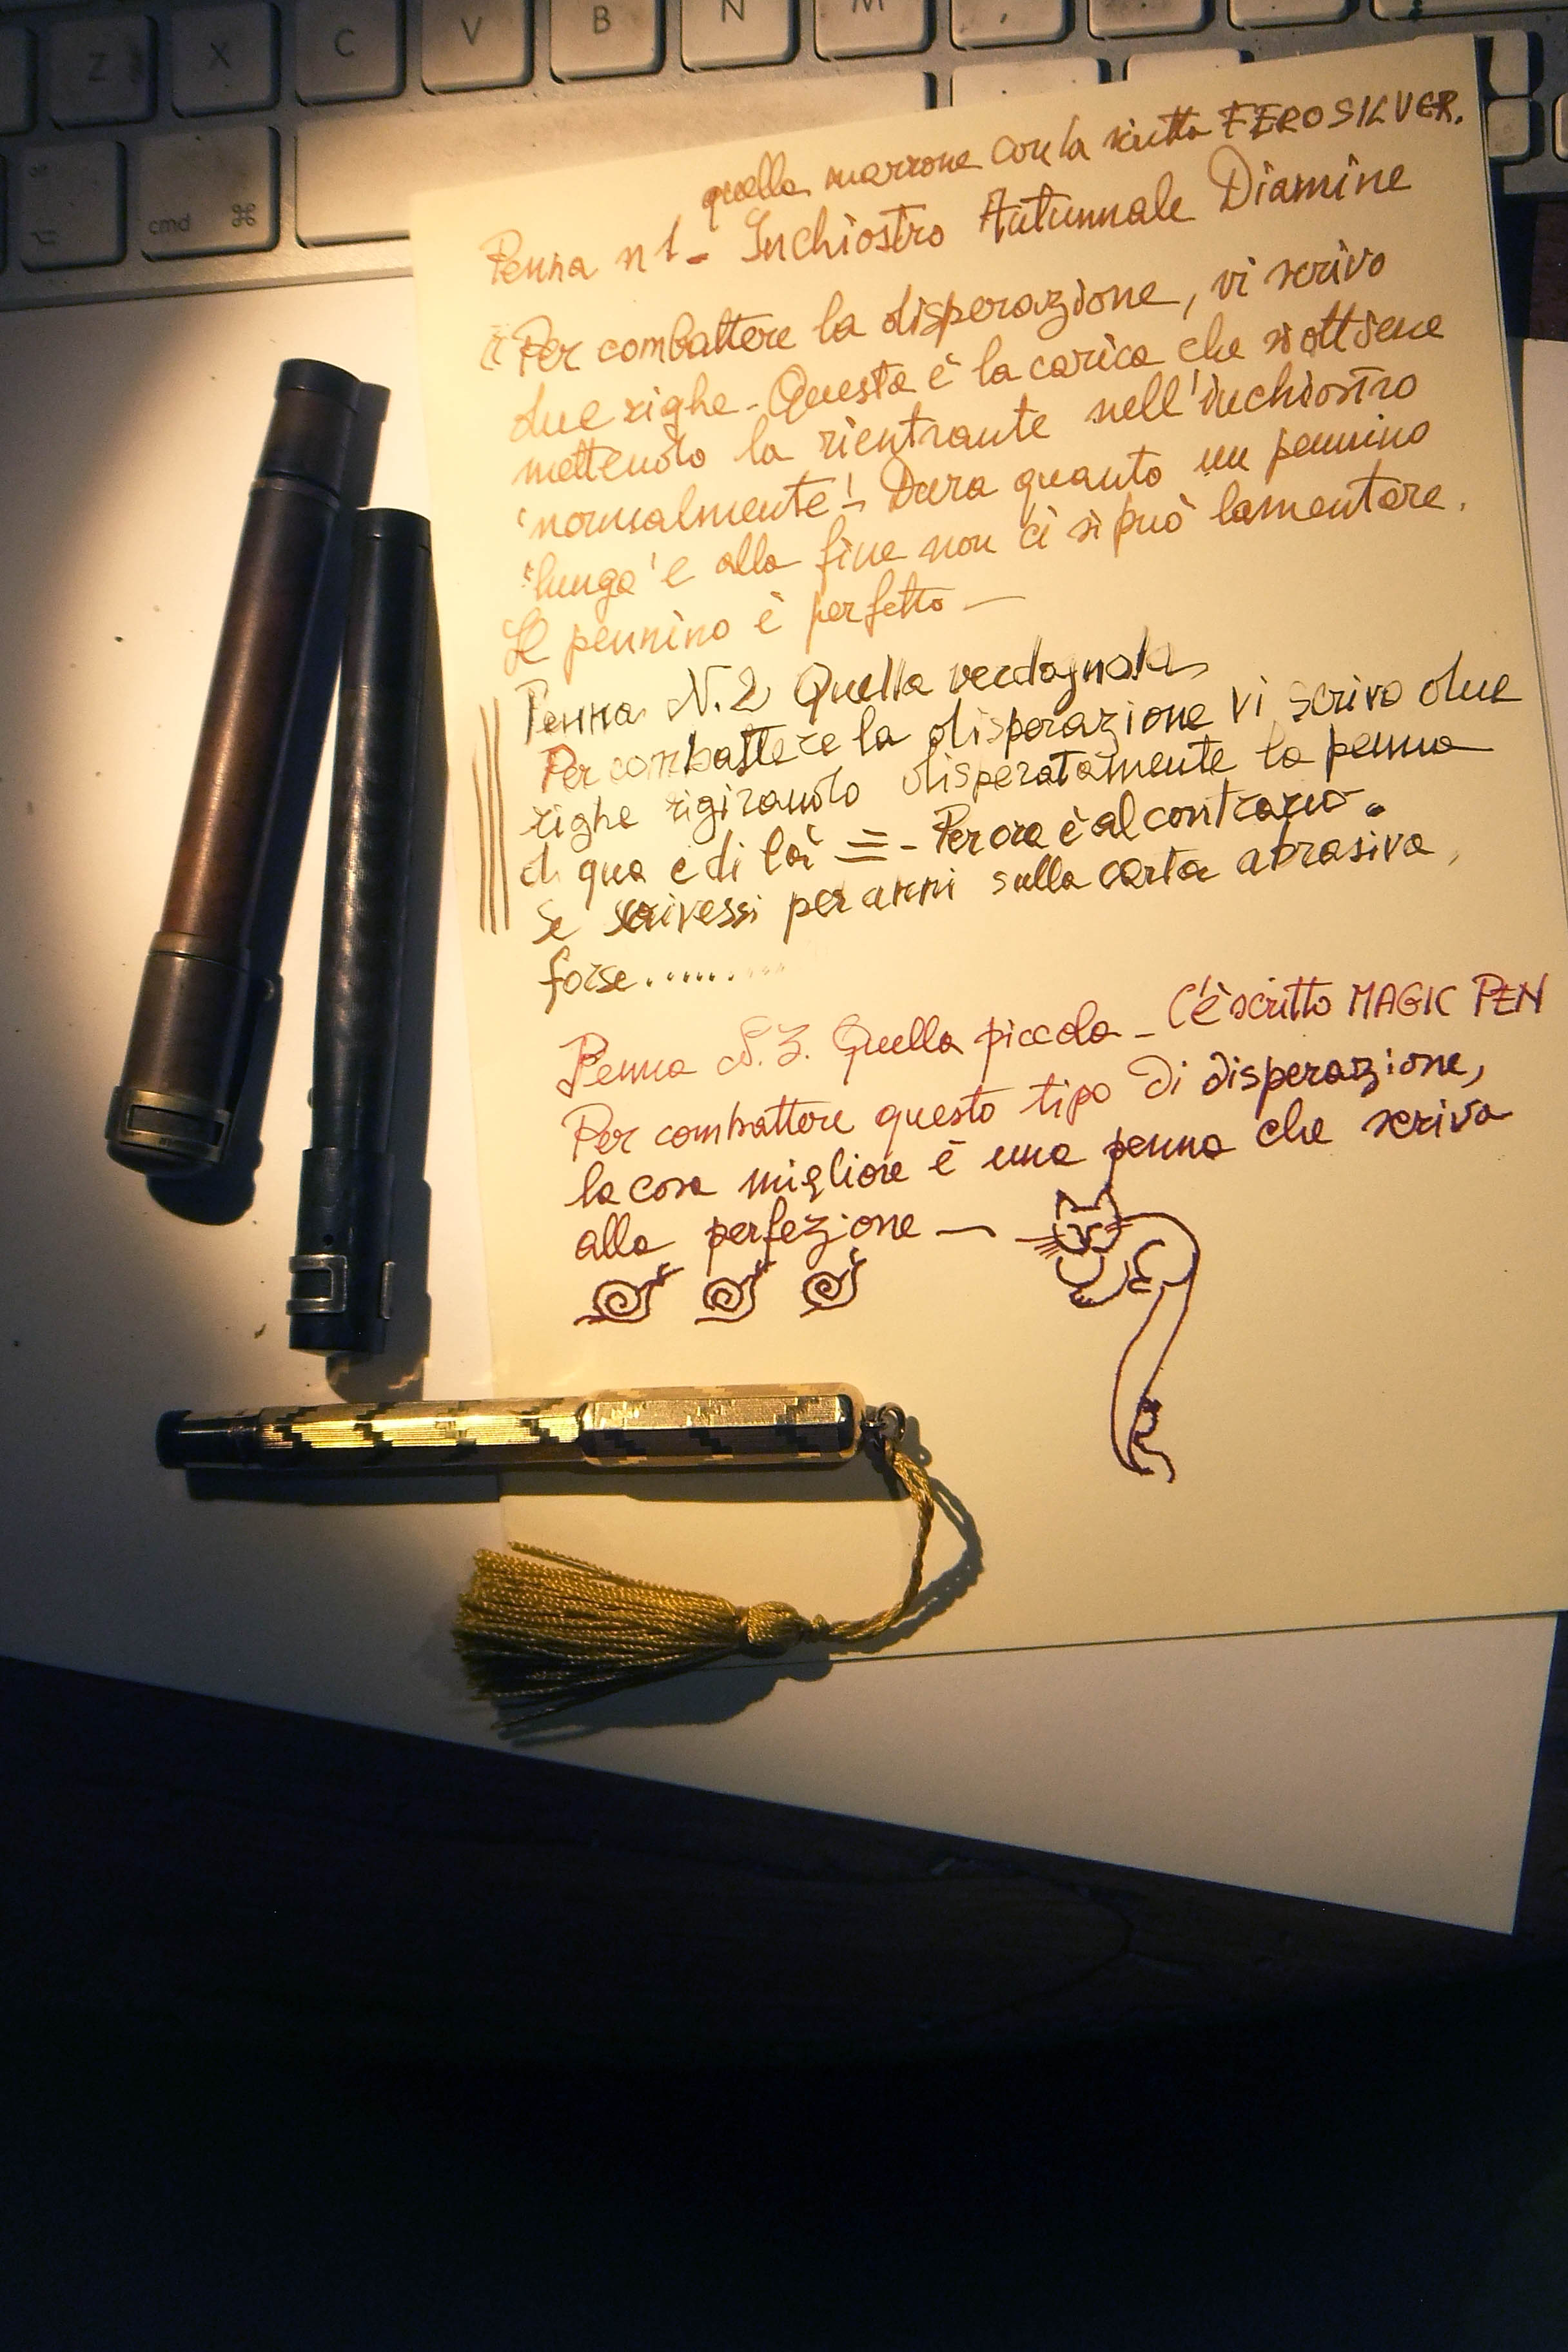 Z X C V B N M ,
alt cmd ⌘
quella marrone con la scritta FEROSILVER.
Penna n 1 - Inchiostro Autunnale Diamine
"Per combattere la disperazione, vi scrivo
due righe - Questa è la carica che si ottiene
mettendo la rientrante nell'inchiostro
'normalmente'! Dura quanto un pennino
'lungo' e alla fine non ci si può lamentare.
Il pennino è perfetto —
Penna N.2 Quella verdognola
Per combattere la disperazione vi scrivo due
righe rigirando disperatamente la penna
di qua e di là - Per ora è al contrario.
Se scrivessi per anni sulla carta abrasiva,
forse..........
Penna N.3. Quella piccola - C'è scritto MAGIC PEN
Per combattere questo tipo di disperazione,
la cosa migliore è una penna che scriva
alla perfezione —